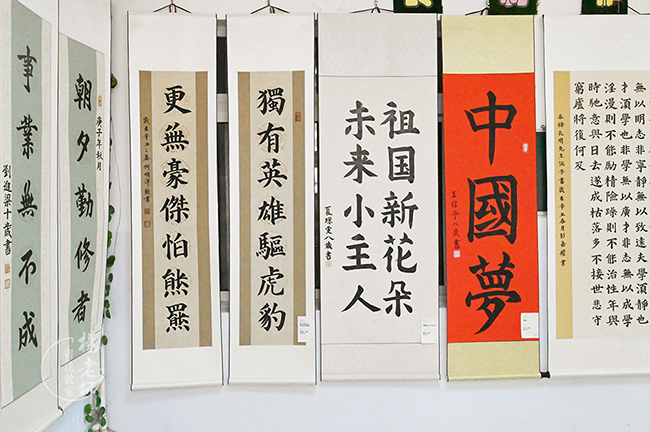 無以明志非寧靜無以致遠夫學須靜也
才須學也非學無以廣才非志無以成學
淫漫則不能勵精險躁則不能治性年與
時馳意與日去遂成枯落多不接世悲守
窮廬將復何及
中國夢
八歲書
祖国新花朵
未来小主人
八歲書
獨有英雄驅虎豹
更無豪傑怕熊羆
歲在辛丑之春何明洋敬書
庚子年秋月
朝夕勤修者
事業無不成
劉進梁十歲書